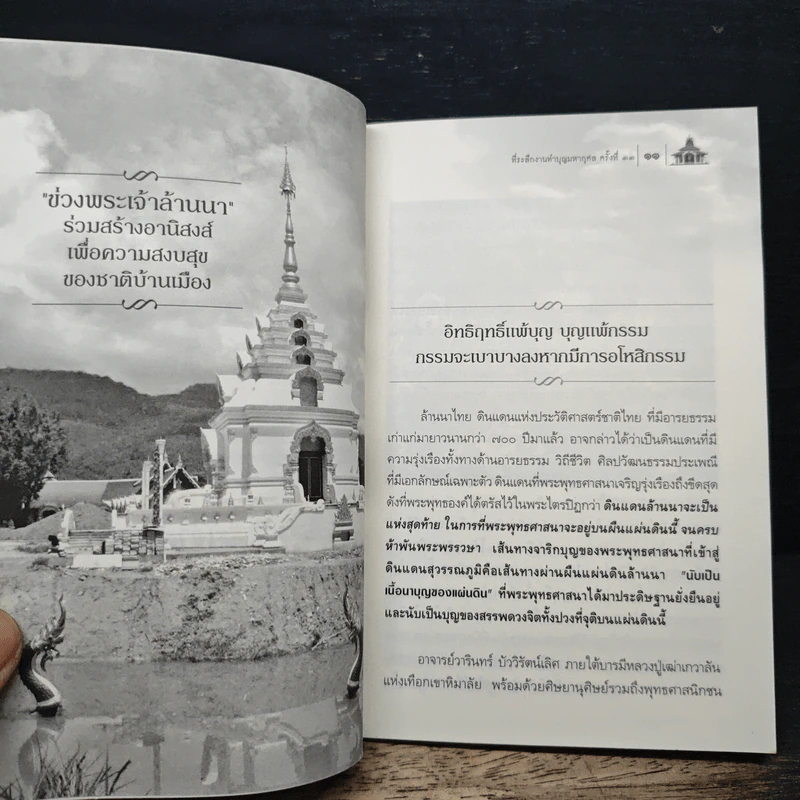 "ข่วงพระเจ้าล้านนา"
ร่วมสร้างอานิสงส์
เพื่อความสงบสุข
ของชาติบ้านเมือง
ที่ระลึกงานทำบุญมหากุศล ครั้งที่ ๓๓ ๑๑
อิทธิฤทธิ์แพ้บุญ บุญแพ้กรรม
กรรมจะเบาบางลงหากมีการอโหสิกรรม
ล้านนาไทย ดินแดนแห่งประวัติศาสตร์ชาติไทย ที่มีอารยธรรม
เก่าแก่มายาวนานกว่า ๗๐๐ ปีมาแล้ว อาจกล่าวได้ว่าเป็นดินแดนที่มี
ความรุ่งเรืองทั้งทางด้านอารยธรรม วิถีชีวิต ศิลปวัฒนธรรมประเพณี
ที่มีเอกลักษณ์เฉพาะตัว ดินแดนที่พระพุทธศาสนาเจริญรุ่งเรืองถึงขีดสุด
ดังที่พระพุทธองค์ได้ตรัสไว้ในพระไตรปิฎกว่า ดินแดนล้านนาจะเป็น
แห่งสุดท้าย ในการที่พระพุทธศาสนาจะอยู่บนผืนแผ่นดินนี้ จนครบ
ห้าพันพระพรรวษา เส้นทางจาริกบุญของพระพุทธศาสนาที่เข้าสู่
ดินแดนสุวรรณภูมิคือเส้นทางผ่านผืนแผ่นดินล้านนา "นับเป็น
เนื้อนาบุญของแผ่นดิน" ที่พระพุทธศาสนาได้มาประดิษฐานยั่งยืนอยู่
และนับเป็นบุญของสรรพดวงจิตทั้งปวงที่จุติบนแผ่นดินนี้
อาจารย์วารินทร์ บัววิรัตน์เลิศ ภายใต้บารมีหลวงปู่เฒ่าเกวาลัน
แห่งเทือกเขาหิมาลัย พร้อมด้วยศิษยานุศิษย์รวมถึงพุทธศาสนิกชน